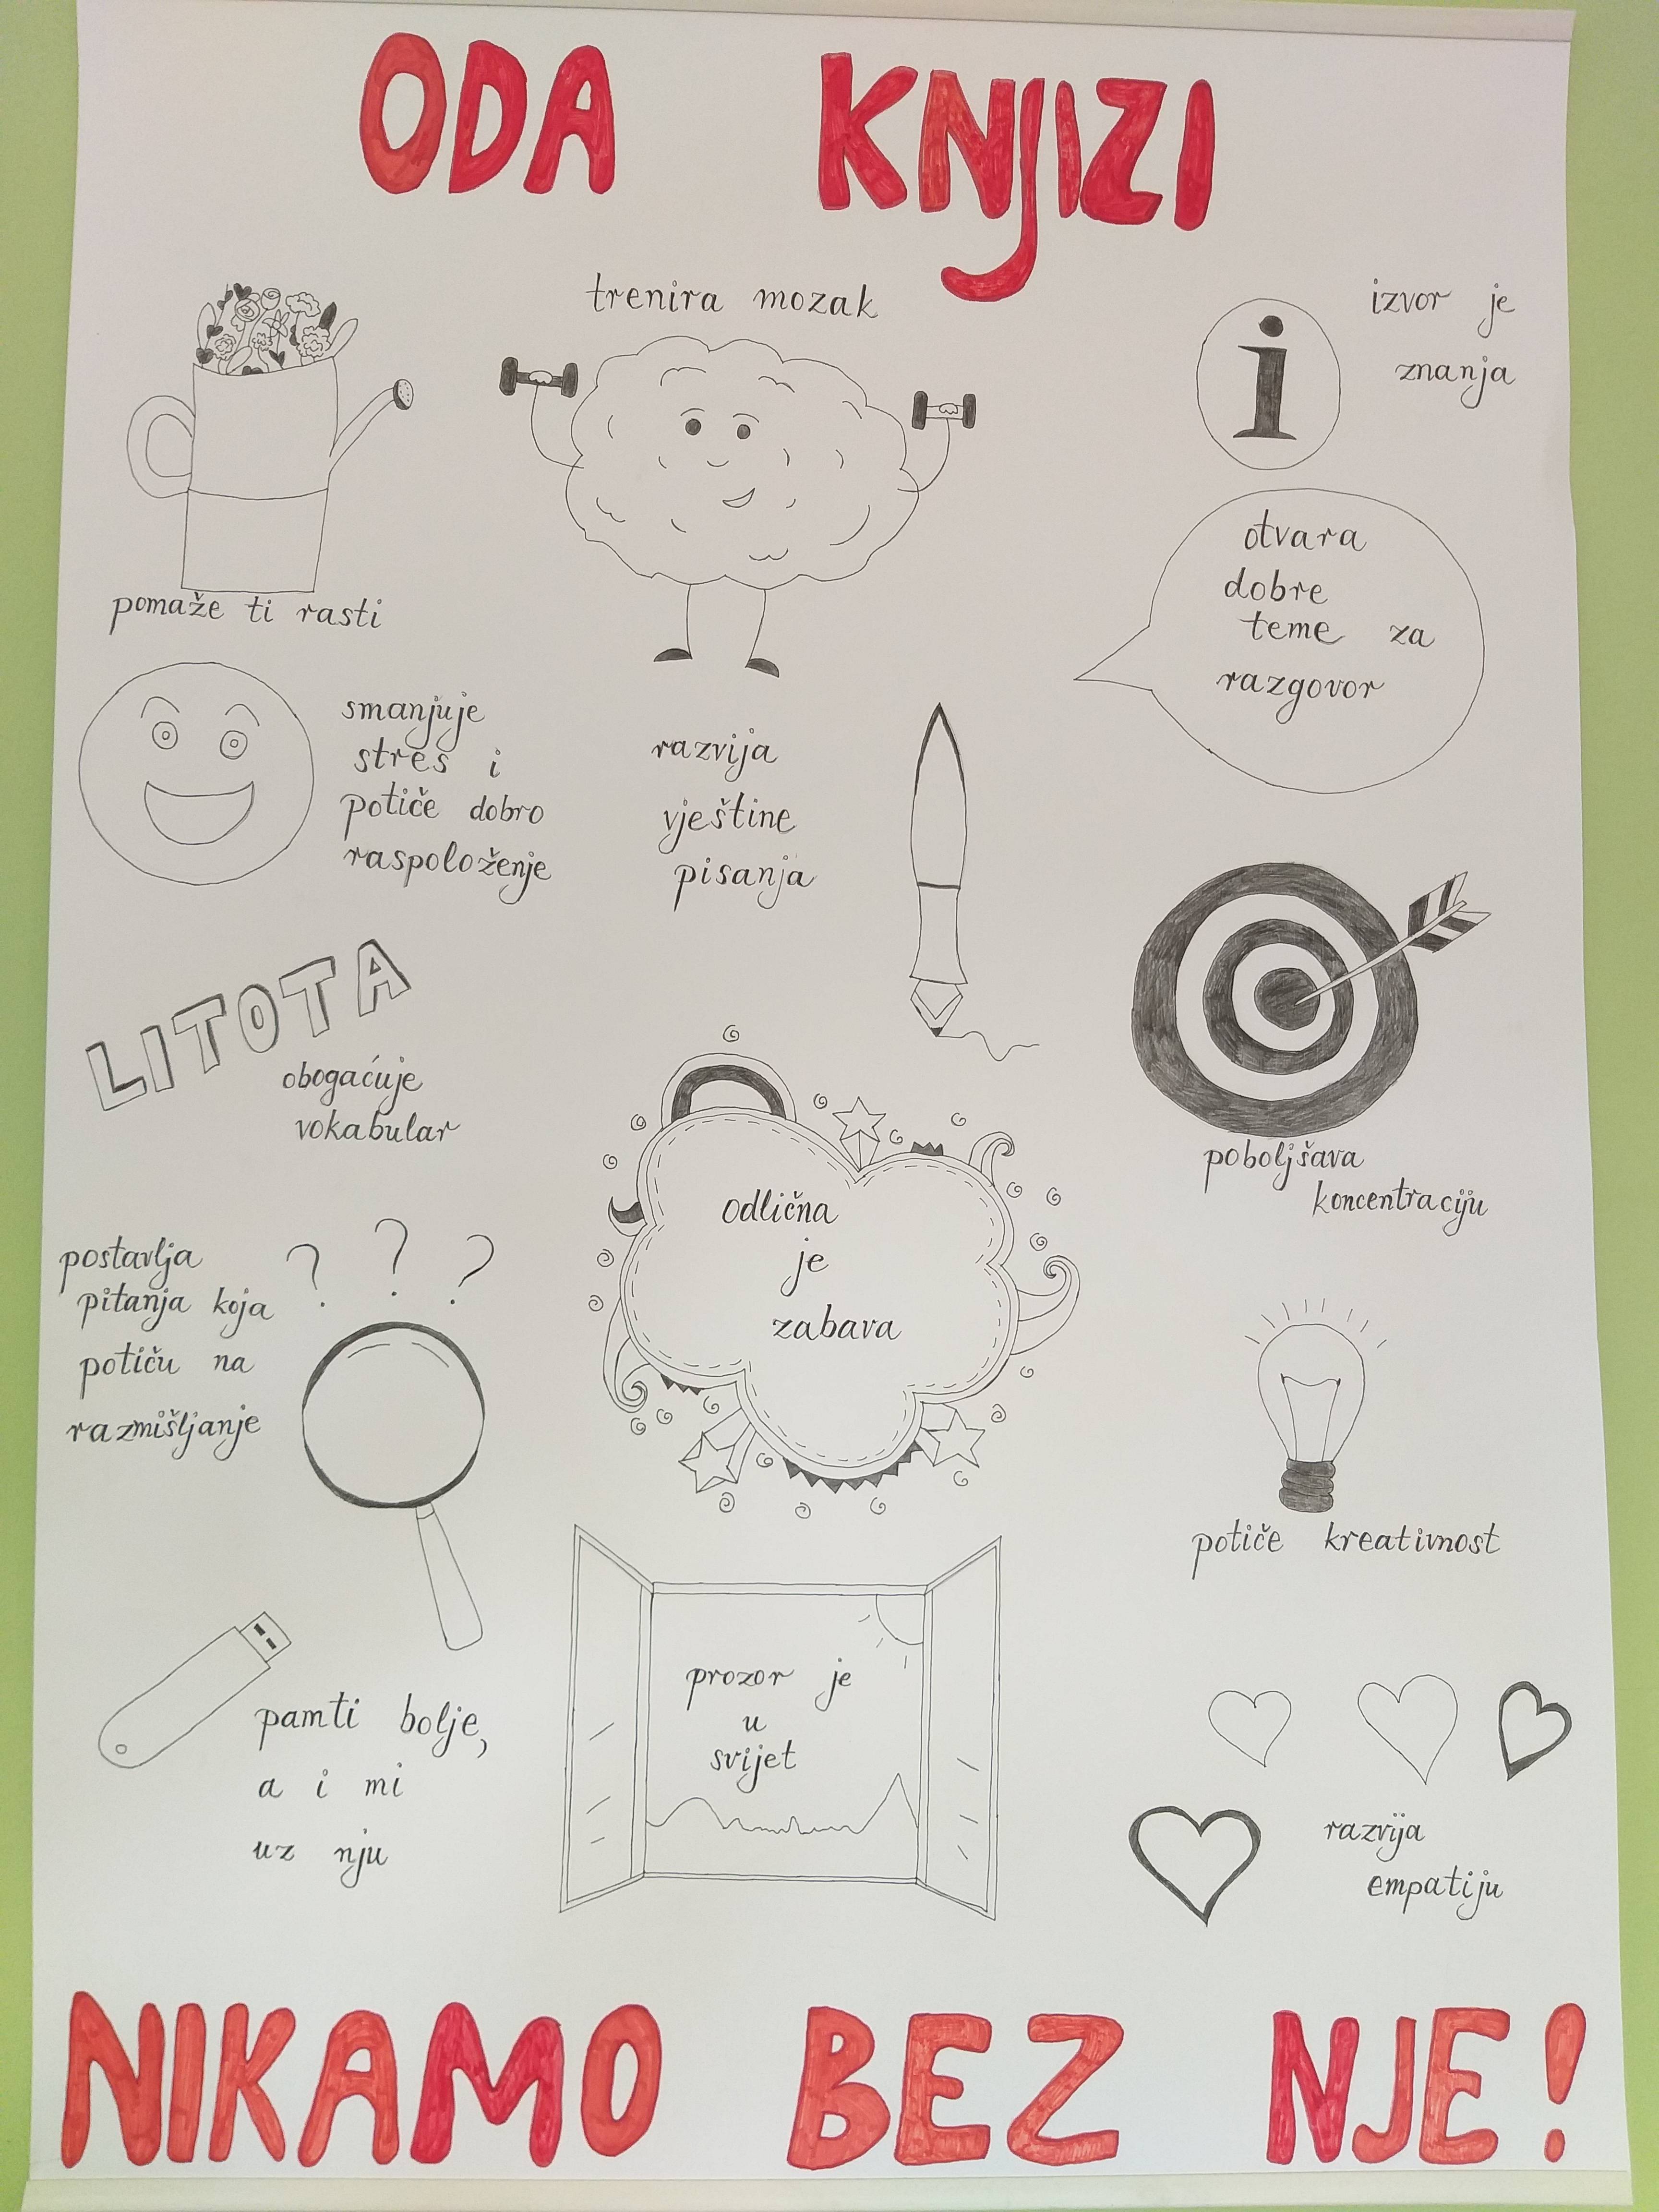 ODA KNJIZI
trenira mozak
izvor je
znanja
pomaže ti rasti
otvara
dobre
teme za
razgovor
smanjuje
stres i
potiče dobro
raspoloženje
razvija
vještine
pisanja
LITOTA
obogaćuje
vokabular
poboljšava
koncentraciju
odlična
je
zabava
postavlja
pitanja koja
potiču na
razmišljanje
? ? ?
potiče kreativnost
pamti bolje,
a i mi
uz nju
prozor je
u
svijet
razvija
empatiju
NIKAMO BEZ NJE!